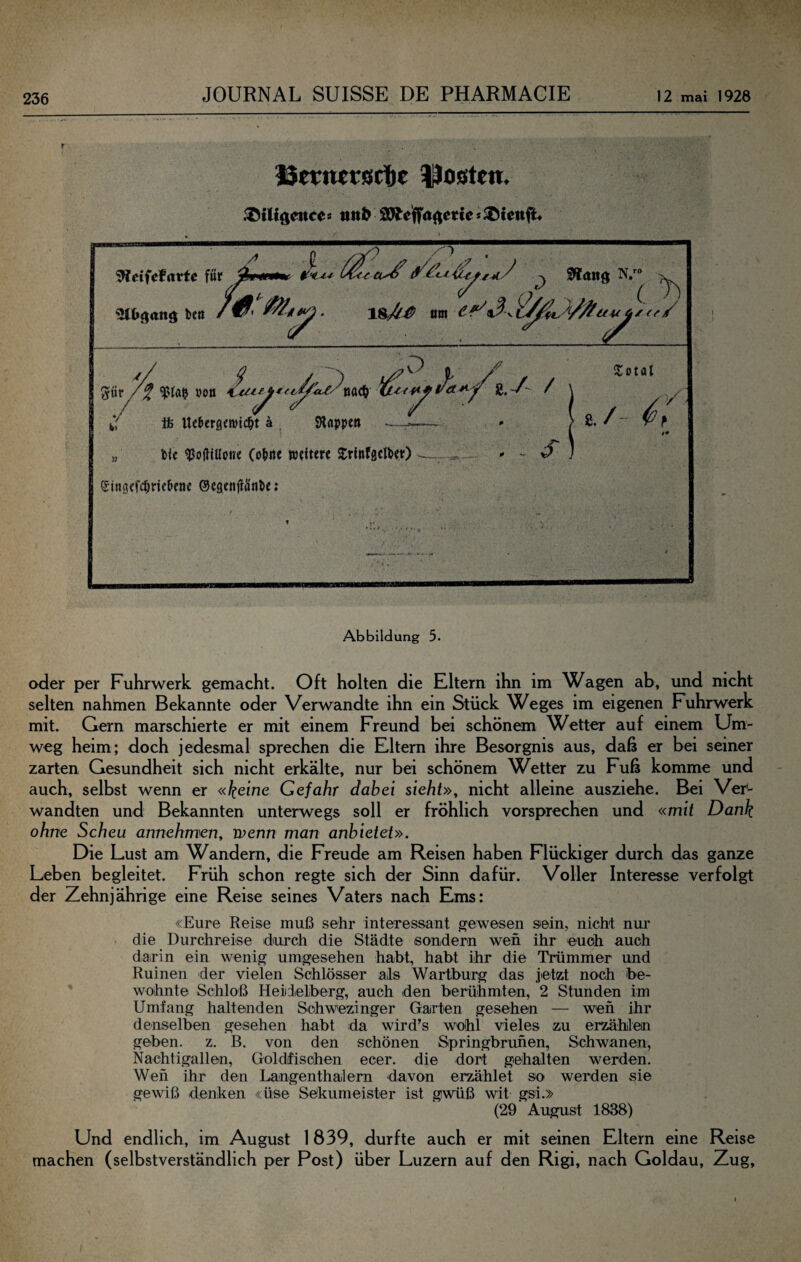 236 JOURNAL SUISSE DE PHARMACIE 12 mai 1928
Bernersche Posten.
Diligence- und Messagerie-Dienst.
Reisekarte für Rang N.ro
Abgang den 18 um
Für Platz von nach L. Total
℔ Uebergewicht à Rappen L.
„ die Postillone (ohne weitere Trinkgelder)
Eingeschriebene Gegenstände:
Abbildung 5.
oder per Fuhrwerk gemacht. Oft holten die Eltern ihn im Wagen ab, und nicht
selten nahmen Bekannte oder Verwandte ihn ein Stück Weges im eigenen Fuhrwerk
mit. Gern marschierte er mit einem Freund bei schönem Wetter auf einem Um-
weg heim; doch jedesmal sprechen die Eltern ihre Besorgnis aus, daß er bei seiner
zarten Gesundheit sich nicht erkälte, nur bei schönem Wetter zu Fuß komme und
auch, selbst wenn er «keine Gefahr dabei sieht», nicht alleine ausziehe. Bei Ver-
wandten und Bekannten unterwegs soll er fröhlich vorsprechen und «mit Dank
ohne Scheu annehmen, wenn man anbietet».
Die Lust am Wandern, die Freude am Reisen haben Flückiger durch das ganze
Leben begleitet. Früh schon regte sich der Sinn dafür. Voller Interesse verfolgt
der Zehnjährige eine Reise seines Vaters nach Ems:
«Eure Reise muß sehr interessant gewesen sein, nicht nur
die Durchreise durch die Städte sondern weñ ihr euch auch
darin ein wenig umgesehen habt, habt ihr die Trümmer und
Ruinen der vielen Schlösser als Wartburg das jetzt noch be-
wohnte Schloß Heidelberg, auch den berühmten, 2 Stunden im
Umfang haltenden Schwezinger Garten gesehen — weñ ihr
denselben gesehen habt da wird's wohl vieles zu erzählen
geben. z. B. von den schönen Springbruñen, Schwanen,
Nachtigallen, Goldfischen ecer. die dort gehalten werden.
Weñ ihr den Langenthalern davon erzählet so werden sie
gewiß denken «üse Sekumeister ist gwüß wit gsi.»
(29 August 1838)
Und endlich, im August 1839, durfte auch er mit seinen Eltern eine Reise
machen (selbstverständlich per Post) über Luzern auf den Rigi, nach Goldau, Zug,